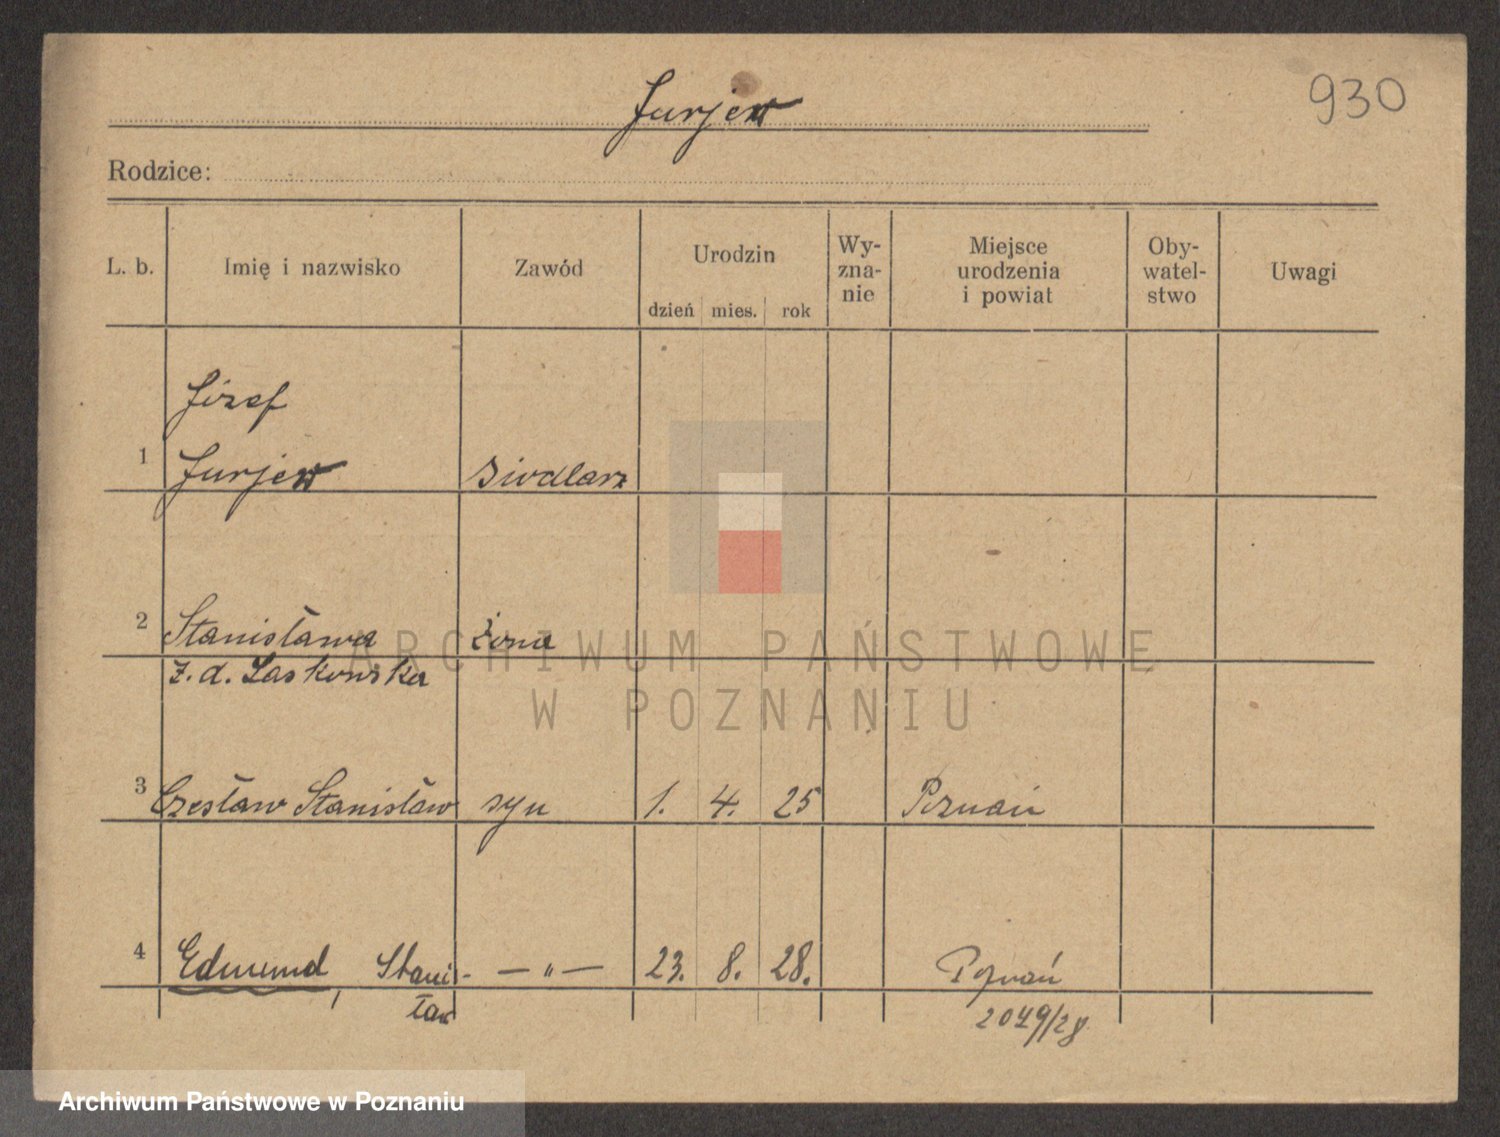 Jurjew
930
Rodzice:
L. b.
Imię i nazwisko
Zawód
Urodzin
dzień mies. rok
Wy-
zna-
nie
Miejsce
urodzenia
i powiat
Oby-
watel-
stwo
Uwagi
Józef
1 Jurjew siodlarz
2 Stanisława żona
z. d. Laskowska
3 Czesław Stanisław syn 1. 4. 25 Poznań
4 Edmund, Stani- — " — 23. 8. 28. Poznań
sław
2049/28
ARCHIWUM PAŃSTWOWE
W POZNANIU
Archiwum Państwowe w Poznaniu